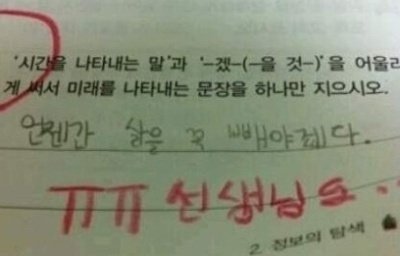 '시간을 나타내는 말'과 '-겠-(-을 것-)'을 어울리
게 써서 미래를 나타내는 문장을 하나만 지으시오.
언젠간 살을 꼭 빼야겠다.
ㅠㅠ 선생님도..
2 정보의 탐색